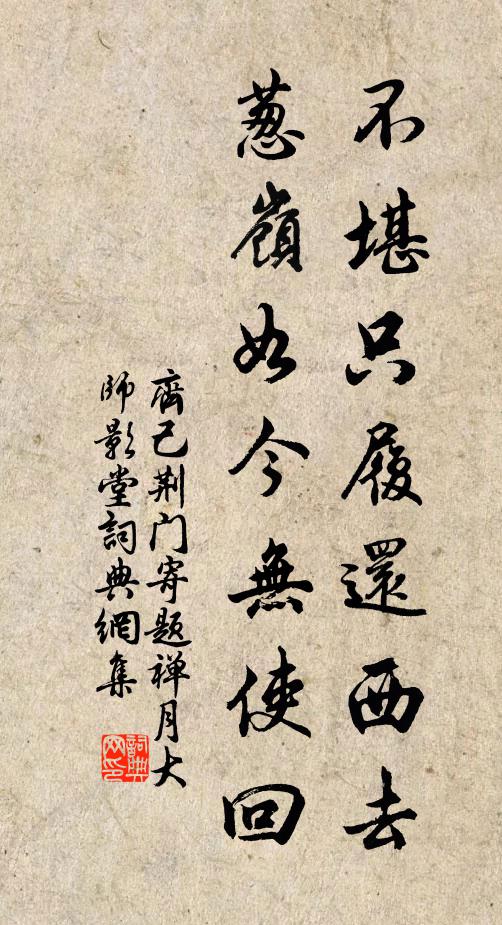 不堪只履還西去
葱嶺如今無使回
齊己荆门寄题禅月大
師影堂詞典網集
詞典
网印